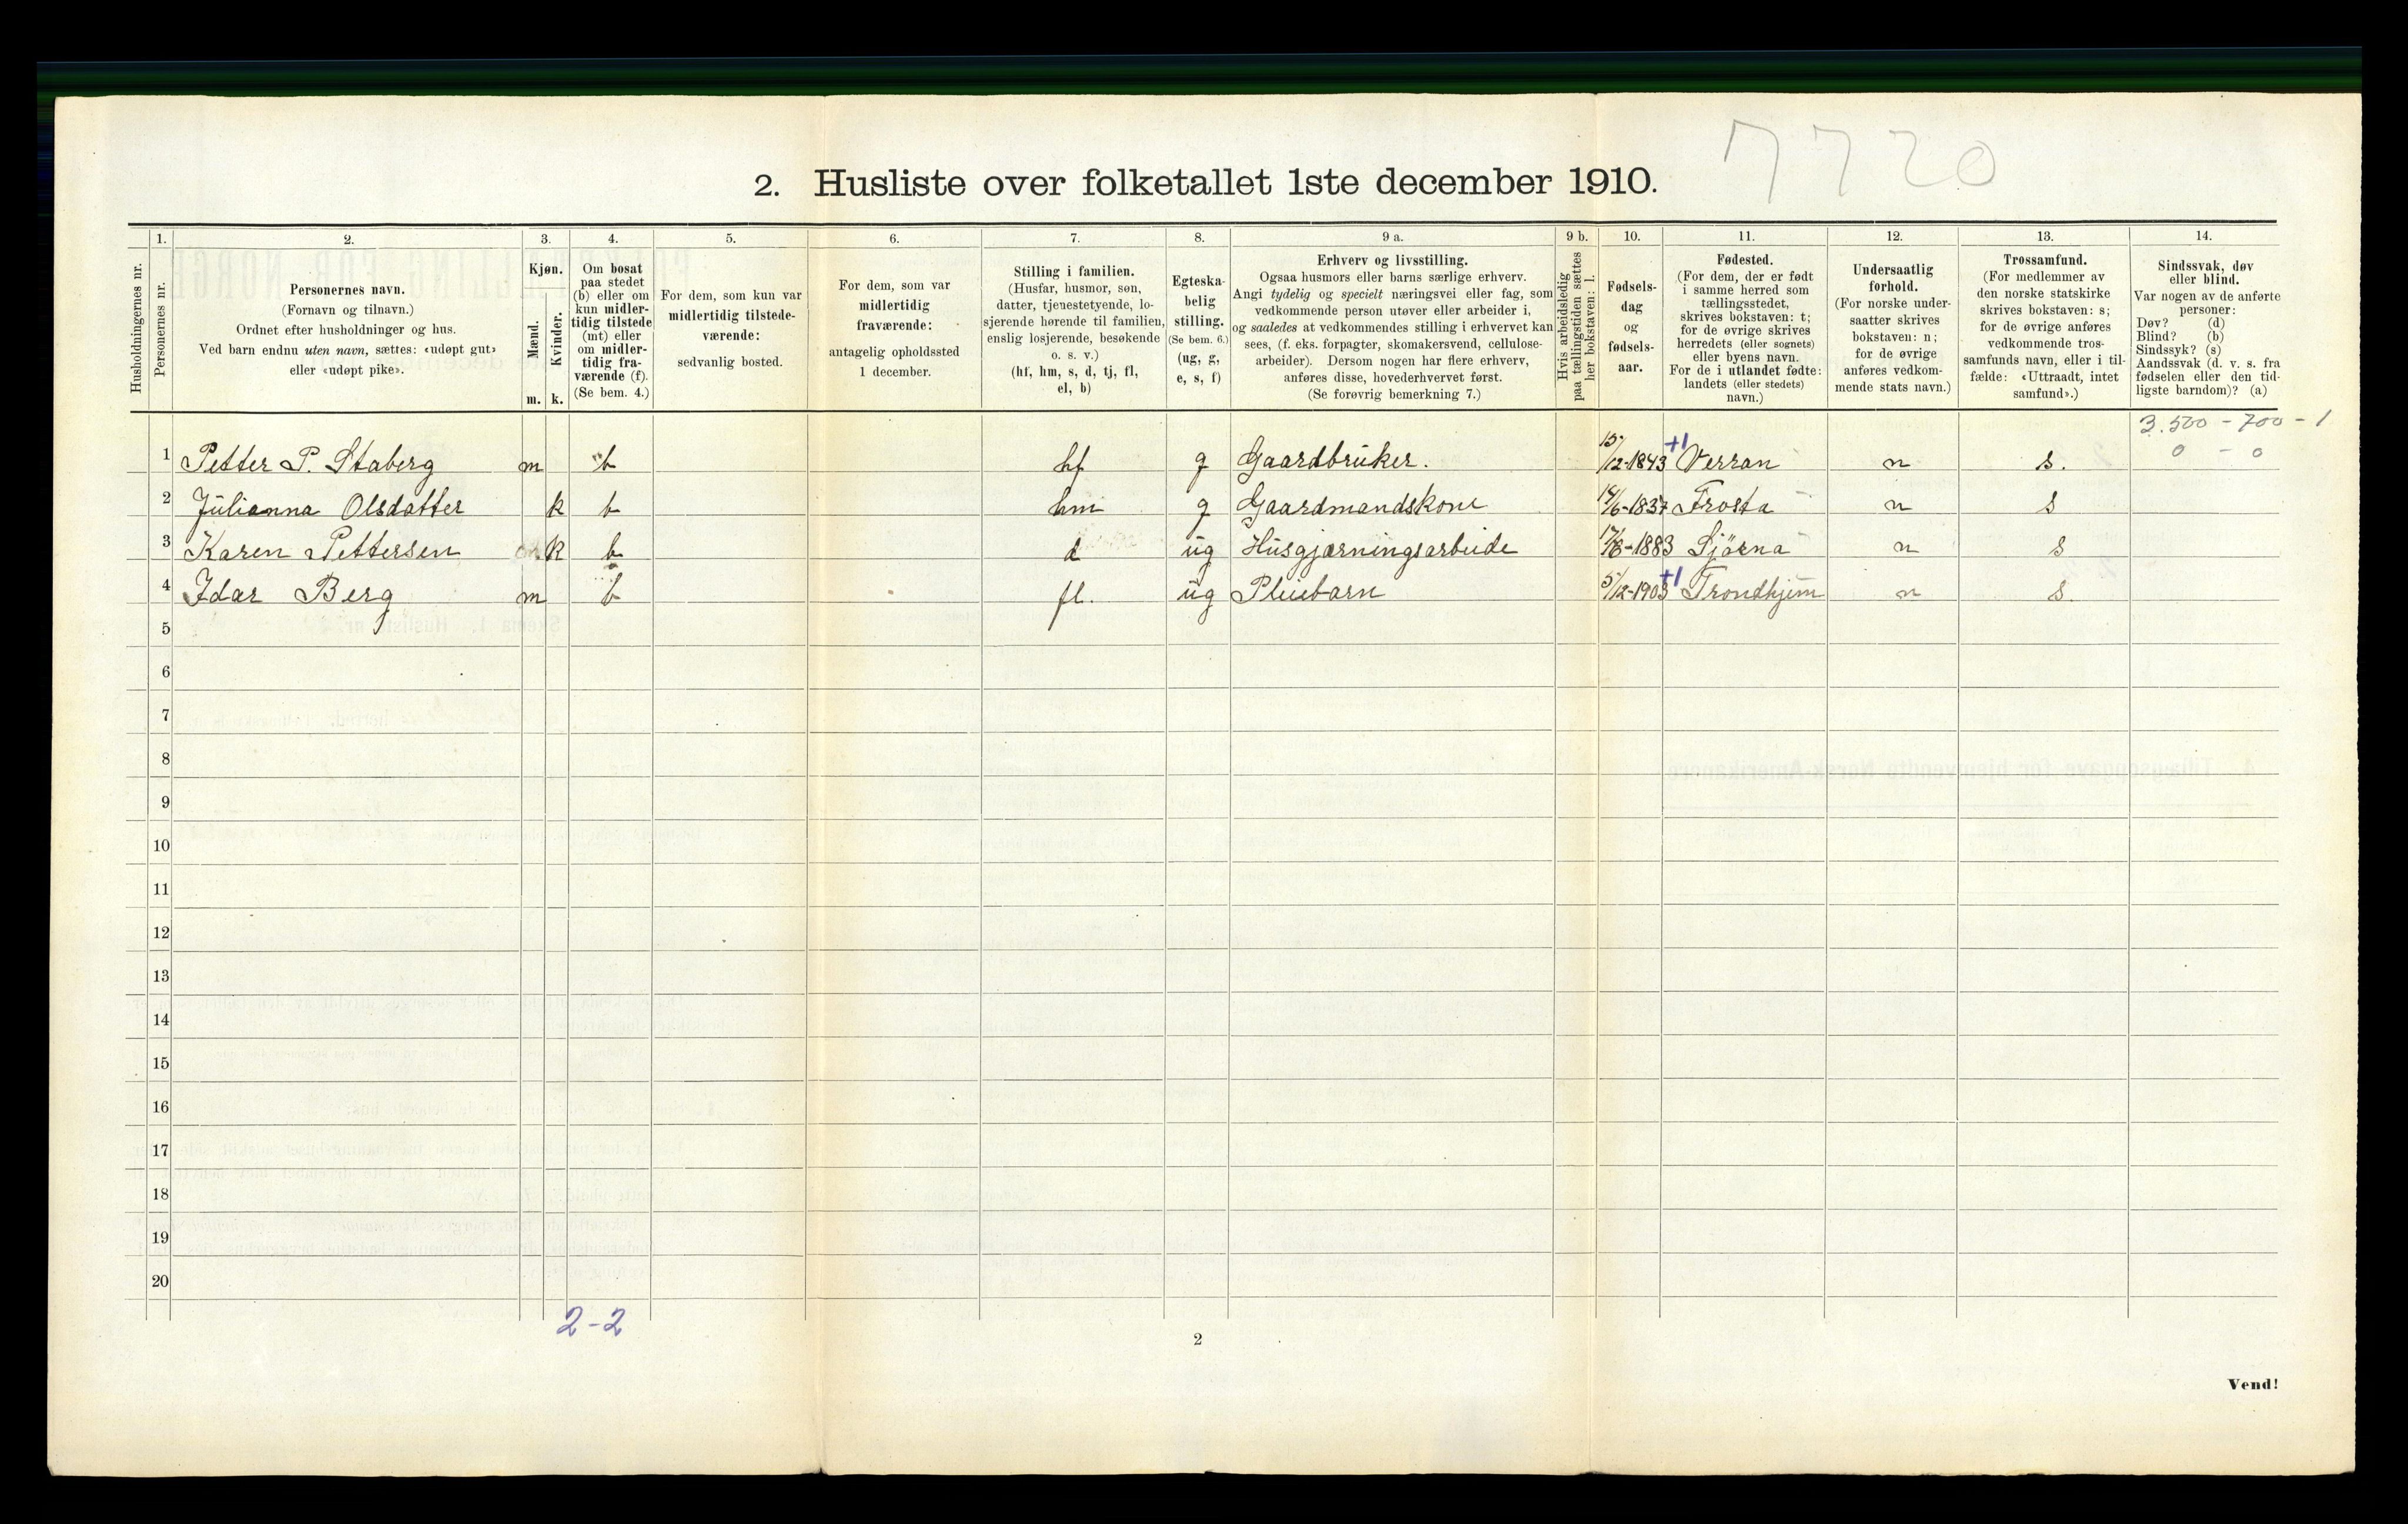 7720
2. Husliste over folketallet 1ste december 1910.
1. 2. 3. 4. 5. 6. 7. 8. 9 a. 9 b. 10. 11. 12. 13. 14.
Husholdningernes nr.
Personernes nr.
Personernes navn.
(Fornavn og tilnavn.)
Ordnet efter husholdninger og hus.
Ved barn endnu uten navn, sættes: «udøpt gut»
eller «udøpt pike».
Kjøn.
Mænd.
Kvinder.
m. k.
Om bosat
paa stedet
(b) eller om
kun midler-
tidig tilstede
(mt) eller
om midler-
tidig fra-
værende (f).
(Se bem. 4.)
For dem, som kun var
midlertidig tilstede-
værende:
sedvanlig bosted.
For dem, som var
midlertidig
fraværende:
antagelig opholdssted
1 december.
Stilling i familien.
(Husfar, husmor, søn,
datter, tjenestetyende, lo-
sjerende hørende til familien,
enslig losjerende, besøkende
o. s. v.)
(hf, hm, s, d, tj, fl,
el, b)
Egteska-
belig
stilling.
(Se bem. 6.)
(ug, g,
e, s, f)
Erhverv og livsstilling.
Ogsaa husmors eller barns særlige erhverv.
Angi tydelig og specielt næringsvei eller fag, som
vedkommende person utøver eller arbeider i,
og saaledes at vedkommendes stilling i erhvervet kan
sees, (f. eks. forpagter, skomakersvend, cellulose-
arbeider). Dersom nogen har flere erhverv,
anføres disse, hovederhvervet først.
(Se forøvrig bemerkning 7.)
Hvis arbeidsledig
paa tællingstiden sættes
her bokstaven: l.
Fødsels-
dag
og
fødsels-
aar.
Fødested.
(For dem, der er født
i samme herred som
tællingsstedet,
skrives bokstaven: t;
for de øvrige skrives
herredets (eller sognets)
eller byens navn.
For de i utlandet fødte:
landets (eller stedets)
navn.)
Undersaatlig
forhold.
(For norske under-
saatter skrives
bokstaven: n;
for de øvrige
anføres vedkom-
mende stats navn.)
Trossamfund.
(For medlemmer av
den norske statskirke
skrives bokstaven: s;
for de øvrige anføres
vedkommende tros-
samfunds navn, eller i til-
fælde: «Uttraadt, intet
samfund».)
Sindssvak, døv
eller blind.
Var nogen av de anførte
personer:
Døv? (d)
Blind? (b)
Sindssyk? (s)
Aandssvak (d. v. s. fra
fødselen eller den tid-
ligste barndom)? (a)
3.500 - 700 - 1
0 - 0
1 Petter P. Staberg m b hf g Gaardbruker. 15/12-1843 +1 Verran n s.
2 Julianna Olsdatter k b hm g Gaardmandskone 14/6-1837 Frosta n s
3 Karen Pettersen k b d ug Husgjærningsarbeide 17/8-1883 Sjörna n s
4 Idar Berg m b fl. ug Pleiebarn 5/12-1903 +1 Trondhjem n s.
5
6
7
8
9
10
11
12
13
14
15
16
17
18
19
20
2-2
2
Vend!